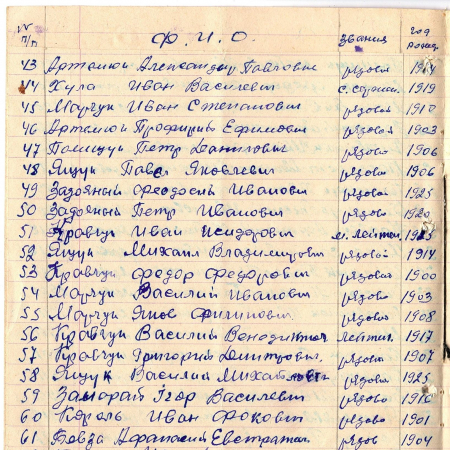 № п/п Ф. И. О. звания год рожд.
43 Артемюк Александр Павлович рядовой 1914
44 Хула Иван Васильевич с. сержан. 1919
45 Марчук Иван Степанович рядовой 1910
46 Артемюк Профирий Ефимович рядовой 1903
47 Полищук Петр Данилович рядовой 1906
48 Ящук Павел Яковлевич рядовой 1906
49 Задояный Феодосий Иванович рядовой 1925
50 Задояный Петр Иванович рядово 1920
51 Кравчук Иван Исидорович м. лейтен.
52 Ящук Михаил Владимирович рядовой 1914
53 Кравчук Федор Федорович рядовой 1900
54 Марчук Василий Иванович рядово 1903
55 Марчук Яков Филипович рядовой 1908
56 Кравчук Василий Венедиктов лейтен. 1917
57 Кравчук Григорий Дмитрович рядово 1907
58 Ящук Василий Михайлович рядово 1925
59 Заморай Ігор Василевич рядово 1910
60 Король Иван Фокович рядово 1901
61 Бовза Афанасий Евстратов рядов 1904